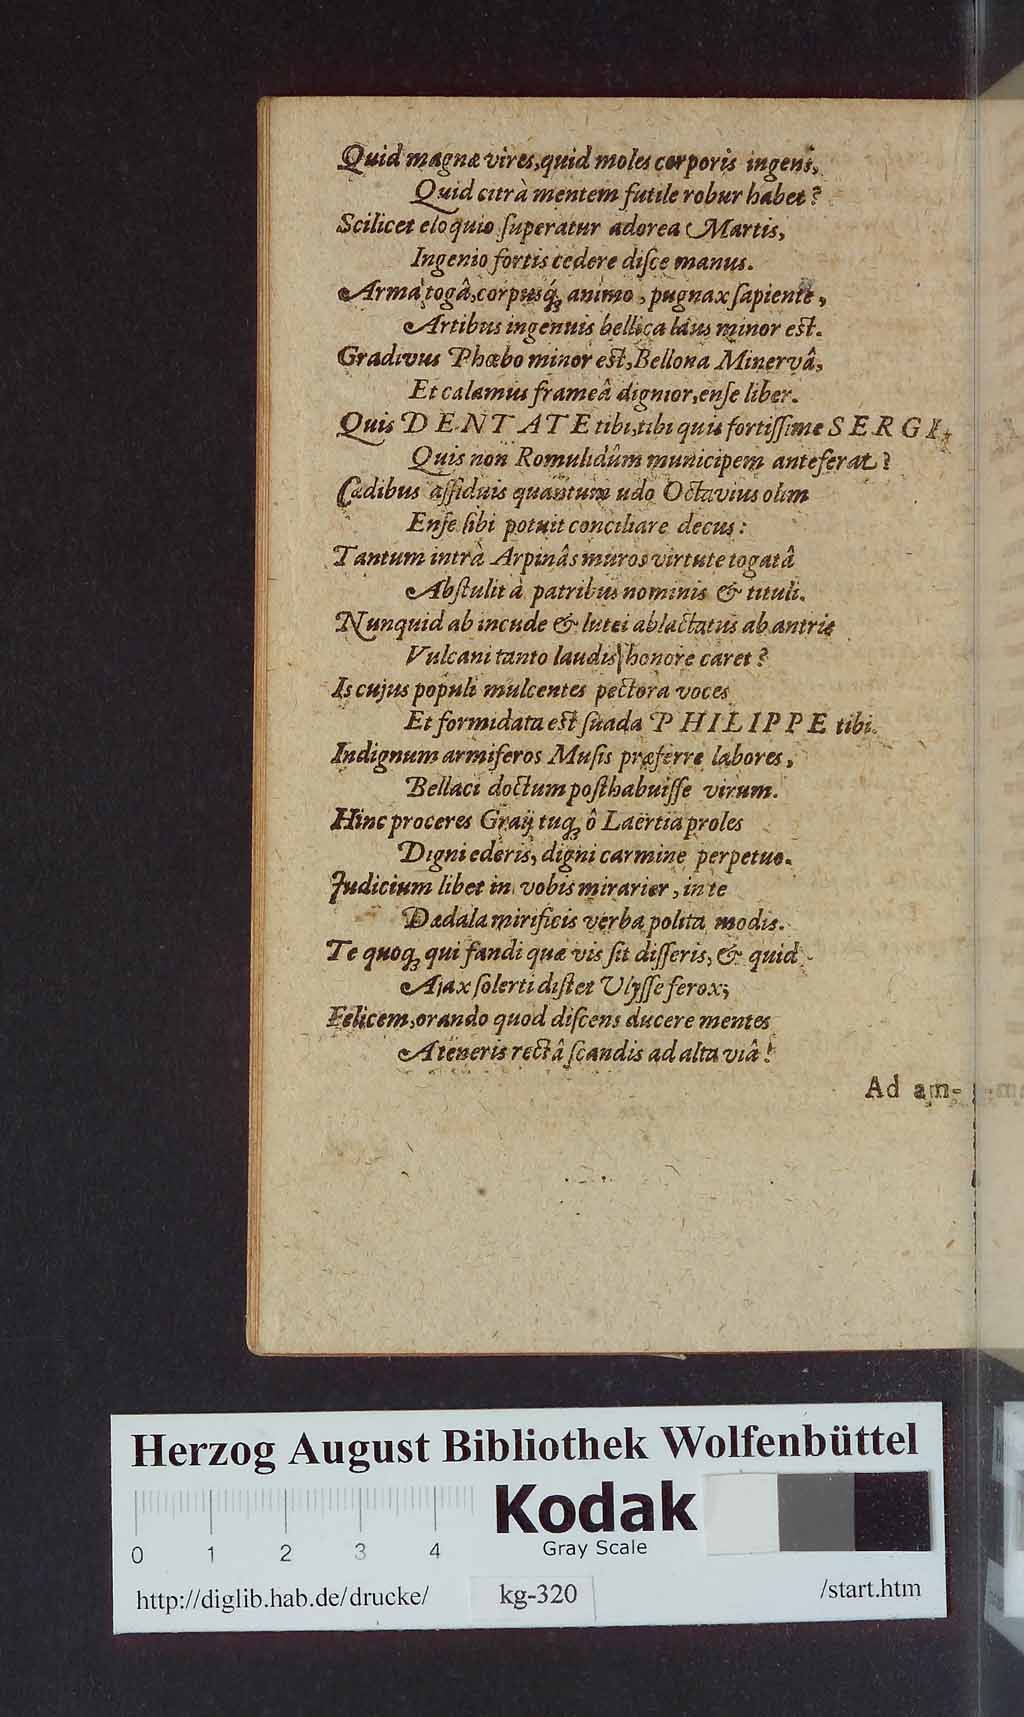 Quid magnæ vires, quid moles corporis ingens,
Quid citrà mentem futile robur habet?
Scilicet eloquio ſuperatur adorea Martis,
Ingenio fortis cedere diſce manus.
Arma togâ, corpusq́ꝫ animo, pugnax ſapiente,
Artibus ingenuis bellica laus minor est.
Gradivus Phœbo minor est, Bellona Minervâ,
Et calamus frameâ dignior, enſe liber.
Quis DENTATE tibi, tibi quis fortiſſime SERGI,
Quis non Romulidûm municipem anteferat?
Cædibus aſſiduis quantum udo Octavius olim
Enſe ſibi potuit conciliare decus:
Tantum intrà Arpinâs muros virtute togatâ
Abſtulit à patribus nominis & tituli.
Nunquid ab incude & lutei ablactatus ab antris
Vulcani tanto laudis honore caret?
Is cujus populi mulcentes pectora voces
Et formidata est ſuada PHILIPPE tibi.
Indignum armiferos Muſis præferre labores,
Bellaci doctum poſthabuiſſe virum.
Hinc proceres Graij tuqꝫ ô Laërtia proles
Digni ederis, digni carmine perpetuo.
Judicium libet in vobis mirarier, in te
Dædala mirificis verba polita modis.
Te quoqꝫ qui fandi quæ vis ſit diſſeris, & quid
Ajax ſolerti diſtet Ulyſſe ferox;
Felicem, orando quod diſcens ducere mentes
A teneris rectâ ſcandis ad alta viâ!
Ad am-
Herzog August Bibliothek Wolfenbüttel
Kodak
Gray Scale
0 1 2 3 4
http://diglib.hab.de/drucke/ kg-320 /start.htm